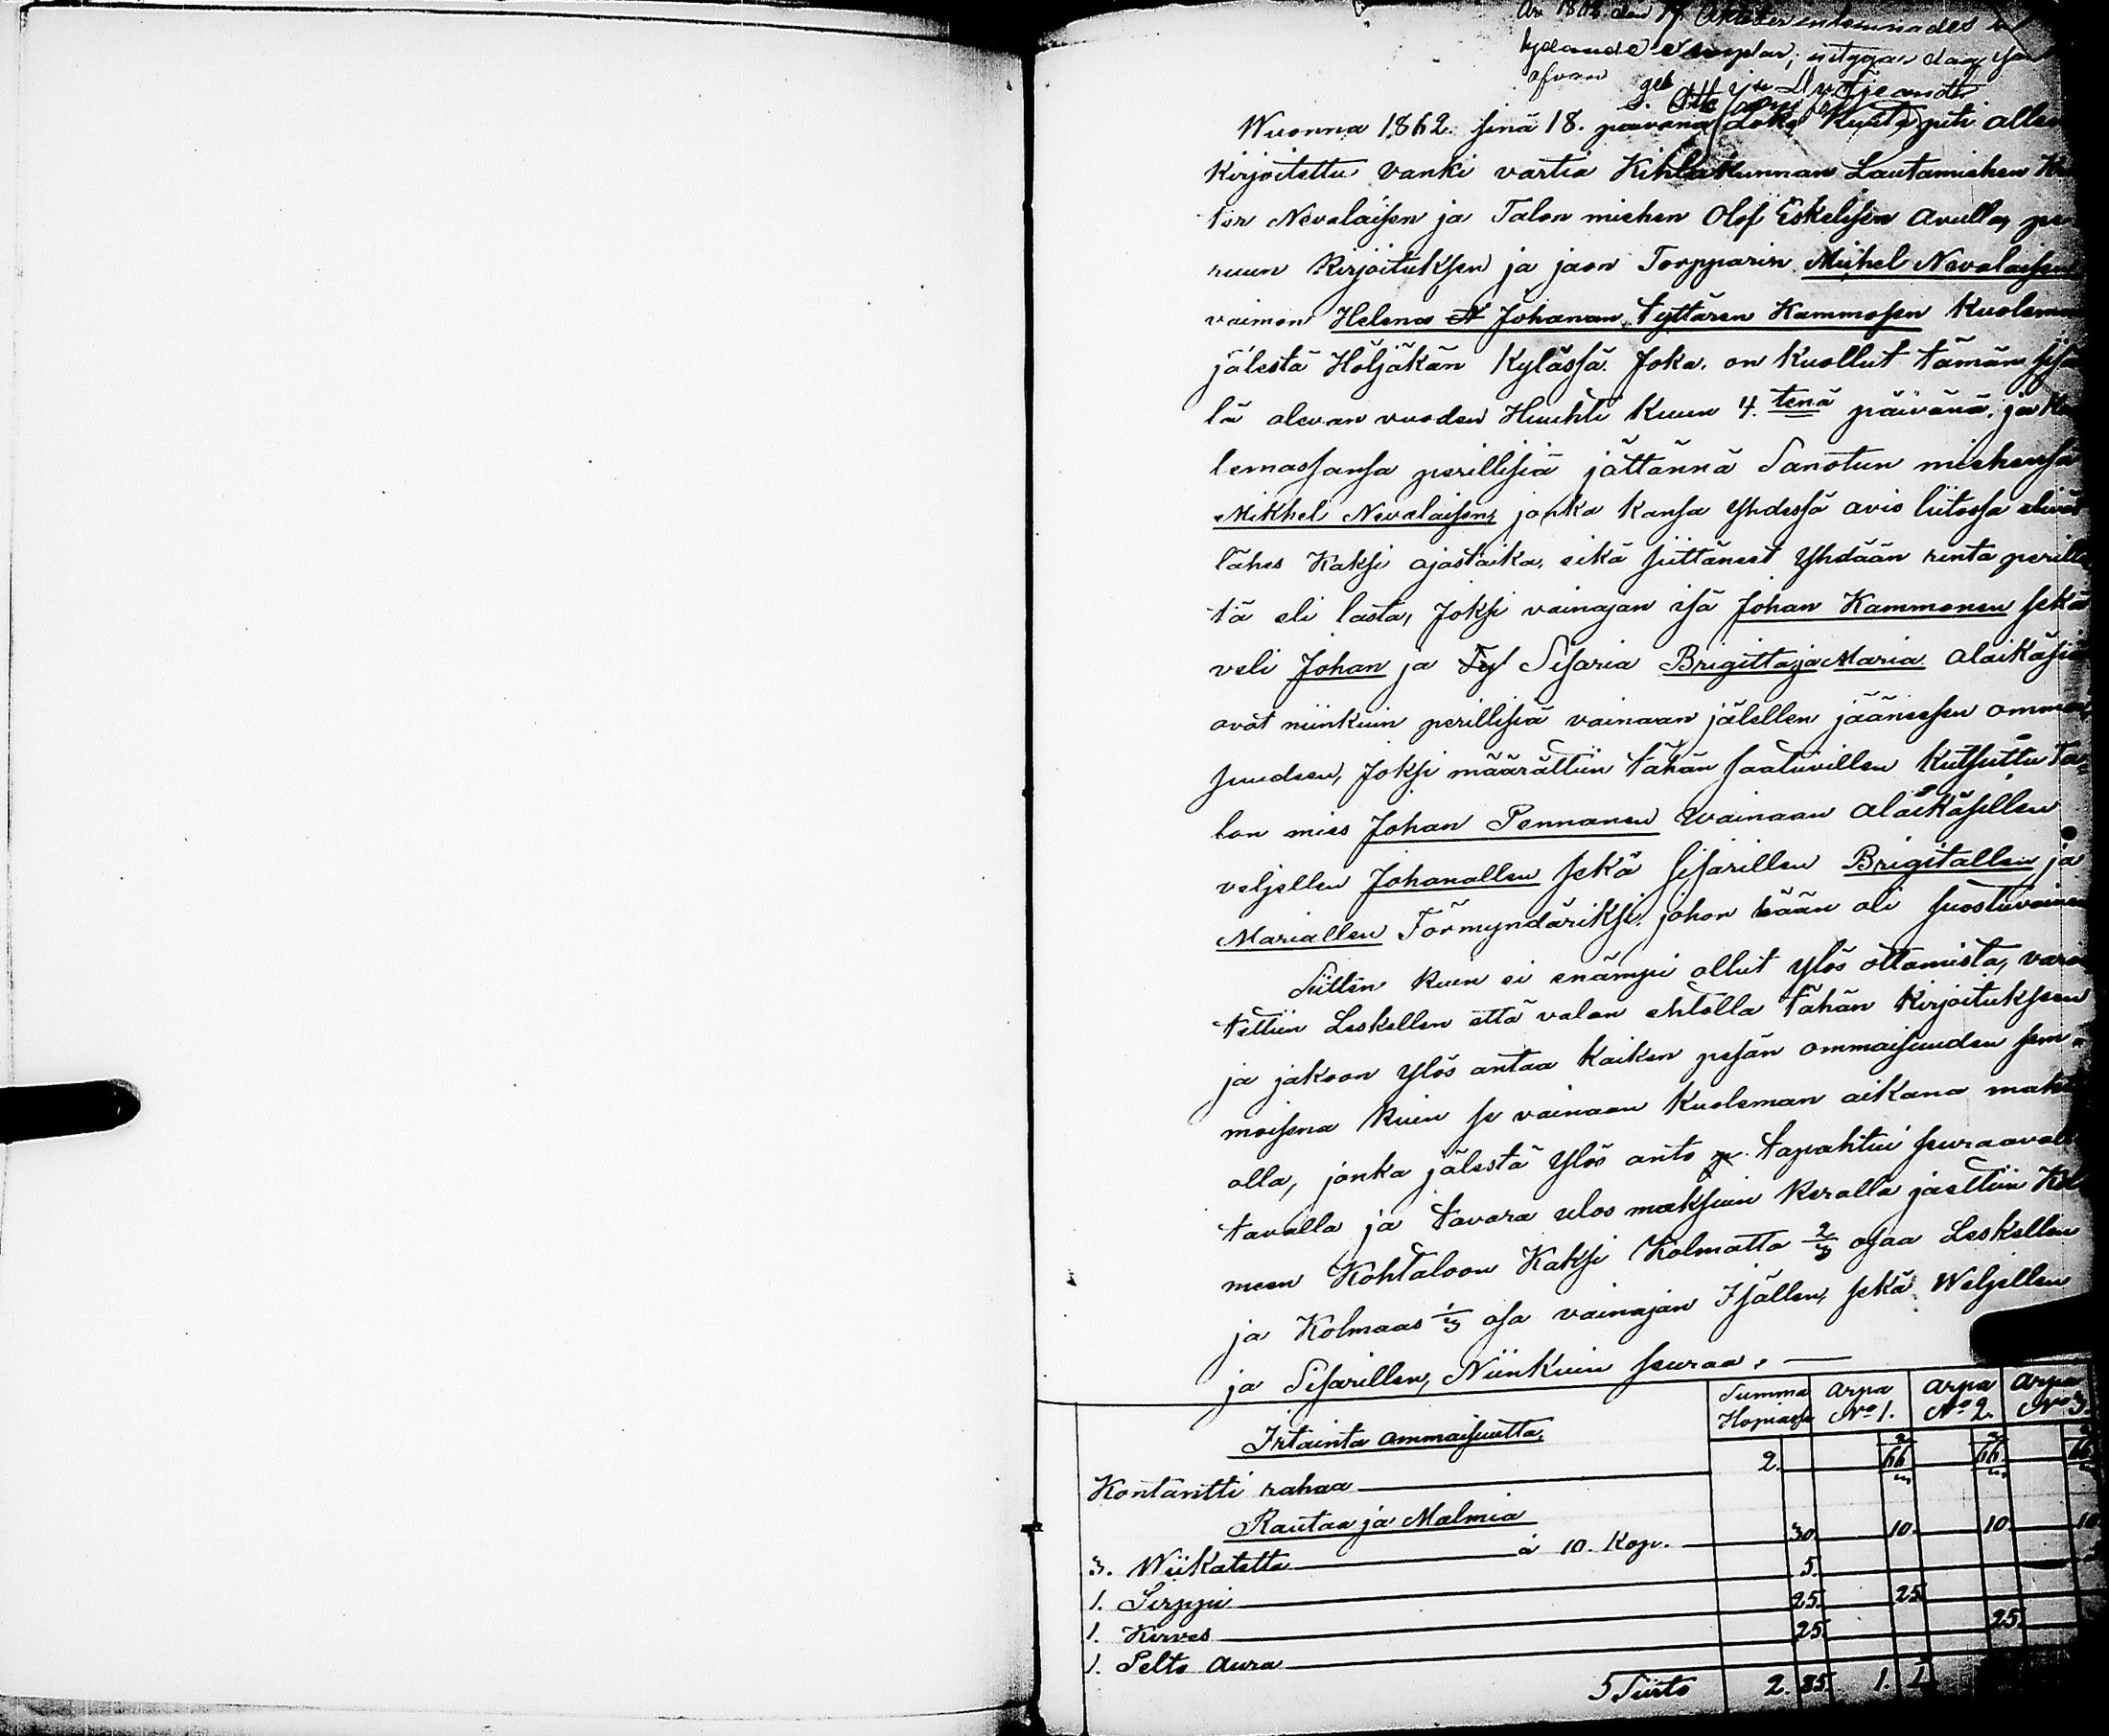 lydande exemplar; utggar dag som
ofvan
Wuonna 1862. sinä 18. päivänä loka kuuta piti allen
kirjoitettu vanki vartia Kihlakunnan Lautamiehen
ter Nevalaisen ja Talon miehen Olof Eskelisen avulla, pe
ruun Kirjoituksen ja jaon Torpparin Mickel Nevalaisen
vaimon Helena Johanan tyttären Kammosen Kuoleman
jälestä Höljäkän Kylässä. Joka on kuollut tämän sisä
lä olevan vuoden Huuhti kuun 4. tenä päivänä, ja
lemassansa perillisiä jättännä Sanotun miehensä
Mikhel Nevalaisen, jonka kansa yhdessä avio liitossa elivät
lähes Kaksi ajastaika, eikä siittäneet yhdään rinta perillis
tä eli lasta, Joksi vainajan isä Johan Kammonen sekä
veli Johan ja Sisaria Brigitta ja Maria alaikäsiä
ovat niinkuin perillisiä vainaan jälellen jääneesen ommai
suudeen, Joksi määrättiin tähän saatuvillen kutsuttu Ta-
lon mies Johan Pennanen Wainaan alaikäsillen
veljellen Johanallen sekä sisarillen Brigitallen ja
Mariallen Förmyndäriksi, johon hään oli suostuvainen
Siitten kuin ei enämpi ollut ylös ottamista, varoi
tettiin Leskellen että valan ehtolla tähän Kirjoituksen
ja jakoon ylös antaa Kaiken pesän ommaisuuden sem-
moisena kuin se vainaan kuoleman aikana mahto
olla, jonka jälestä ylös anto tapahtui seuraavalla
tavalla ja tavara ulos maksuin keralla jaettiin Kol
meen Kohtaloon Kaksi Kolmatta 2/3 osaa Leskellen
ja Kolmaas 1/3 osa vainajan Isällen, sekä Weljellen
ja Sisarillen, Niinkuin seuraa. —
Summa Hopiassa Arpa No 1. Arpa No 2. Arpa No 3.
Irtainta ommaisuutta,
Kontantti rahaa 2. 66 2/3 66 2/3 66
Rautaa ja Malmia
3. Wiikatetta à 10. Kop. 30. 10. 10 10
1. Sirppi 5.
1. Kirves 25. 25
1. Pelto Aura 25. 25.
Siirto 2. 85. 1. 1